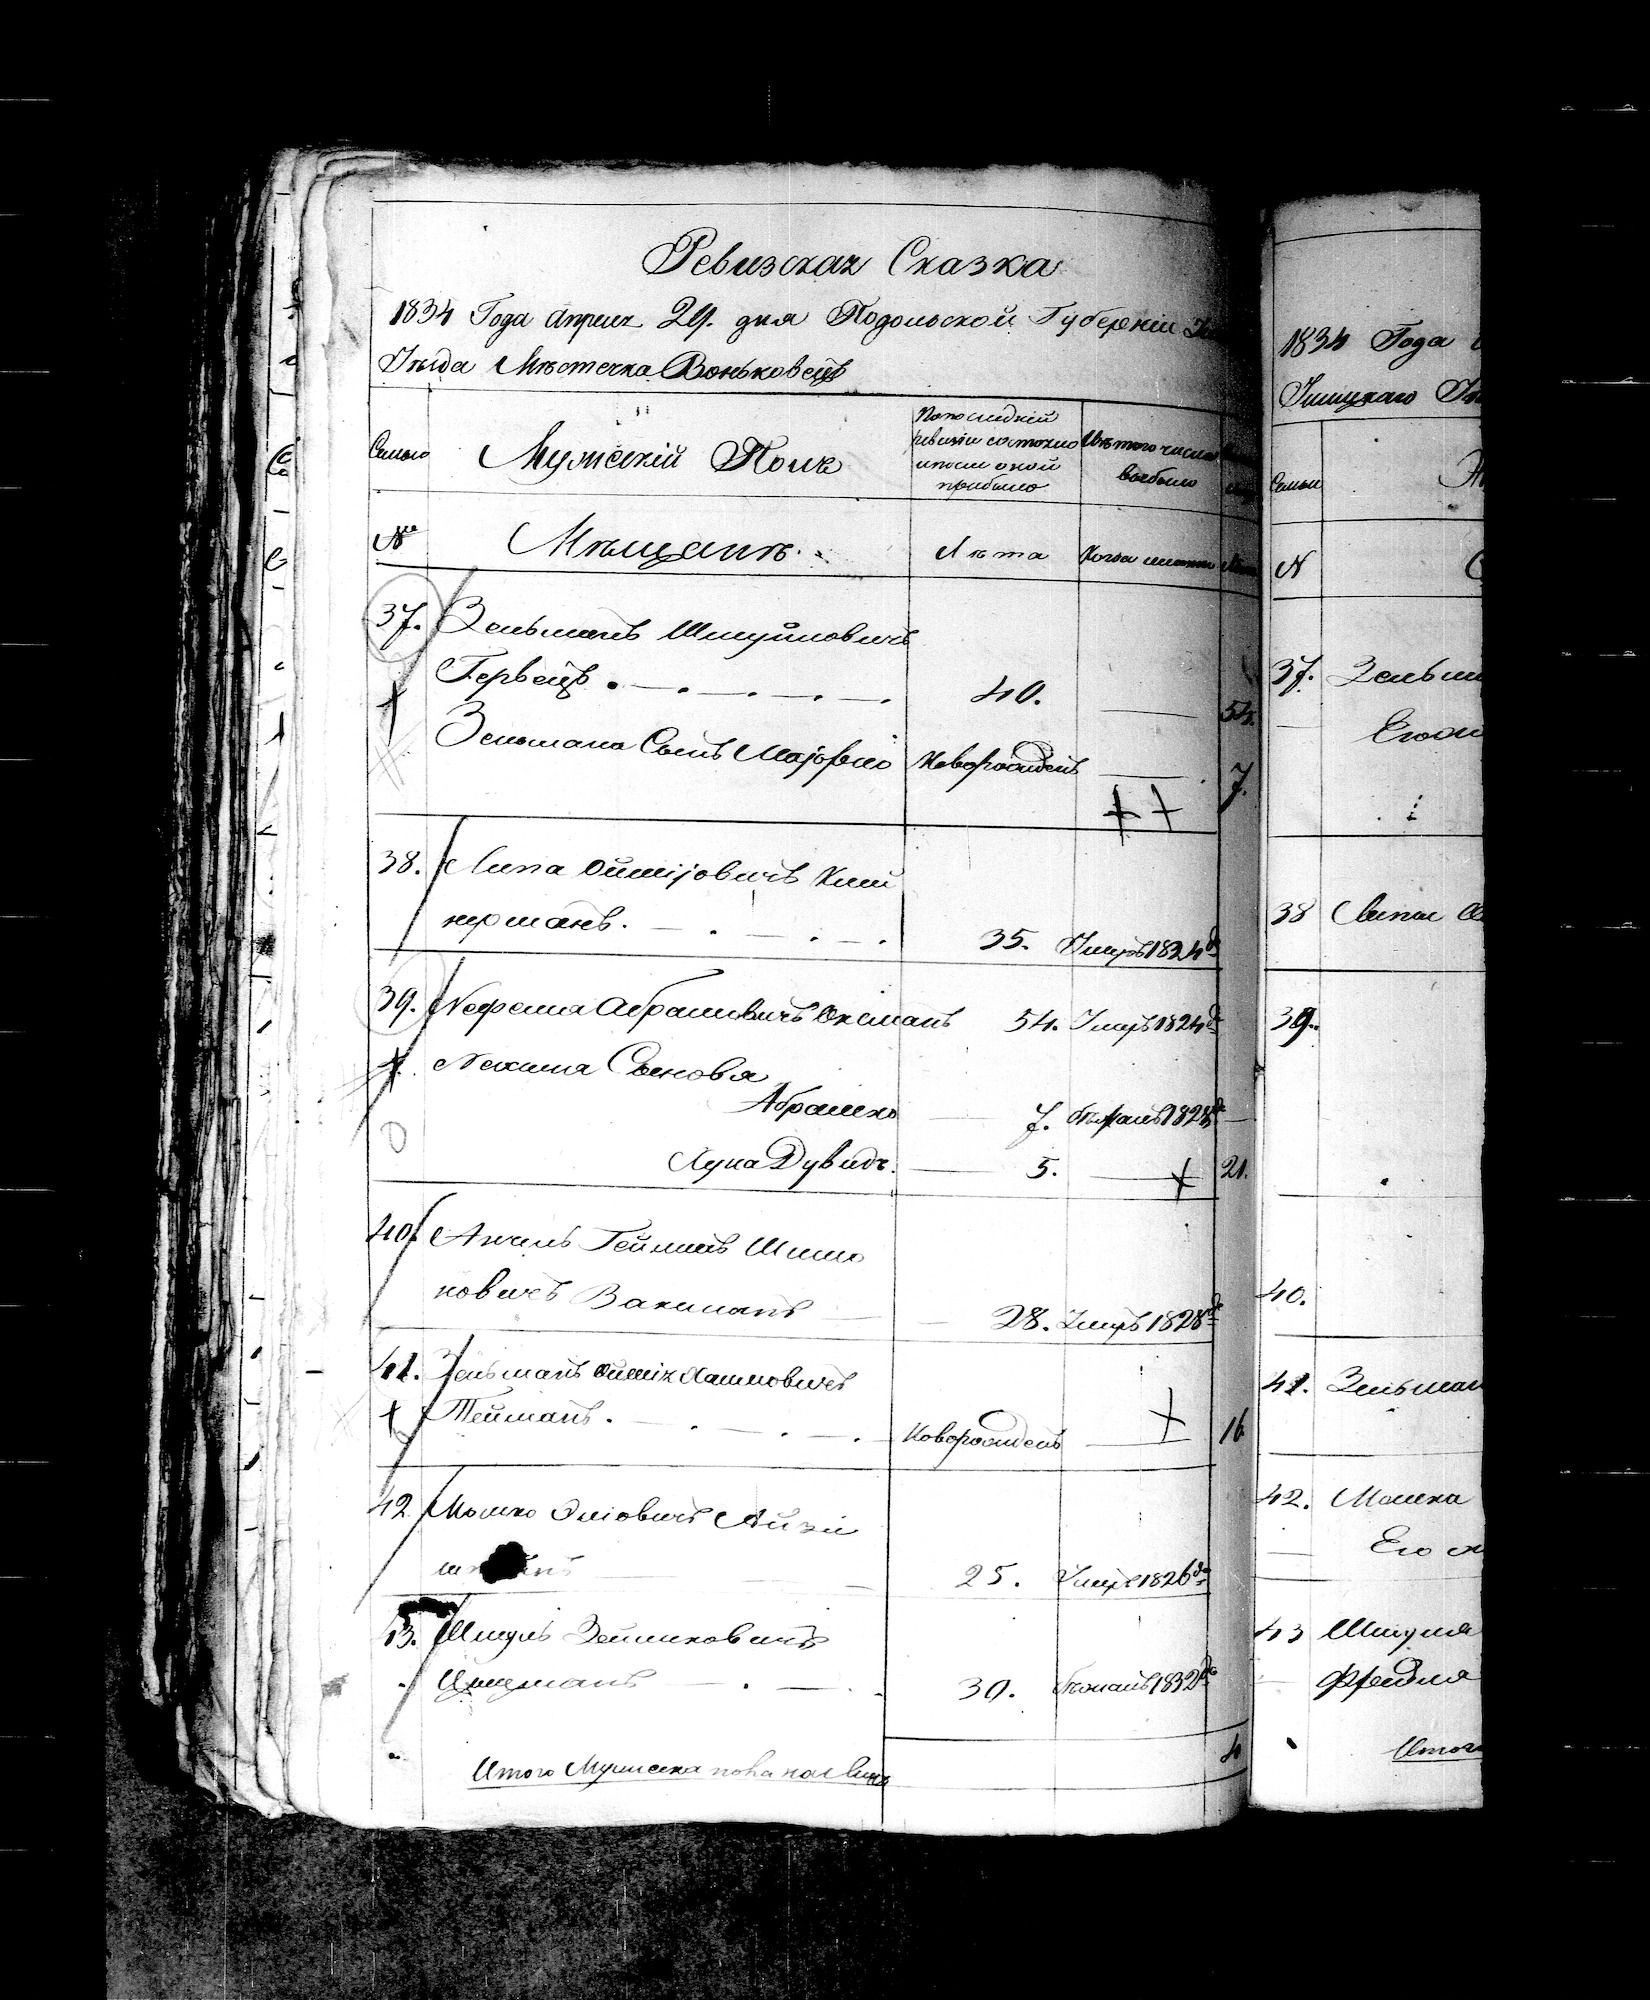 Ревизская Сказка
1834 Года Апреля 29. дня Подольской Губерніи
Уѣзда Мѣстечка Воньковецъ
Семьи
Мужескій Полъ
По последней
ревизіи состояло
и после оной
прибыло
Изъ того числа
выбыло
№
Мѣщанѣ.
Лѣта
Когда именно
37. Зельманъ Шмуйловичъ
Гервецъ 40. 54.
Зельмана Сынъ Маjорко Новорожденъ 7.
38. Липа Ойшіjовичъ Кши
нерманъ. 35. Умеръ 1824 го
39. Нефтила Абрамовичъ Оксманъ 54. Умеръ 1824 го
Сыновя
Абрамко 7. 1828
Дувидъ. 5. 21.
40. Анчель Гейнихъ Шимо
новичъ Ваксманъ 28. Умеръ 1828 го
41. Зельманъ Ойшія Хаимовичъ
Тейманъ. Новорожденъ 16
42 Мошко Эліовичъ Айзи
25. Умеръ 1826 го
43. Шмуль Зейликовичъ
30. 1832 го
Итого Мужеска пола на лицо 4
1834 Года
Ушицкаго
Семьи
N
37. Зельма
Его
38 Липы
39.
40.
41. Зельман
42. Мошка
Его
43 Шмуля
Фрейда
Итого